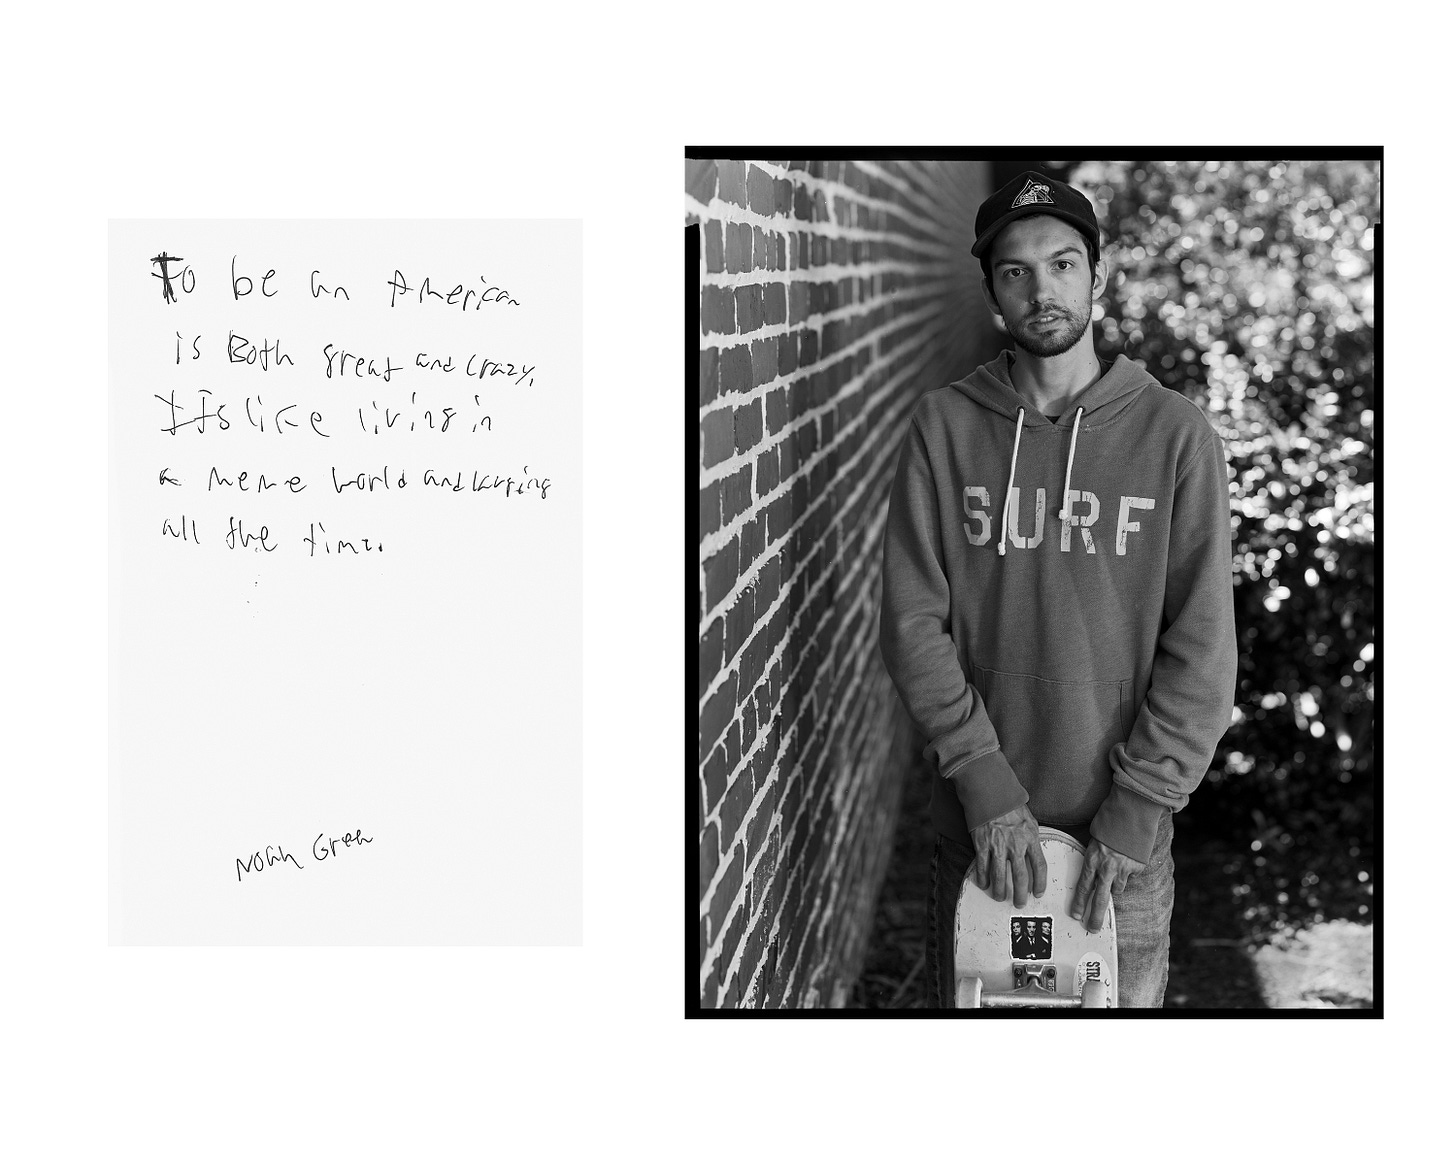 To be an American
is Both great and crazy,
Its like living in
a meme world and larping
all the time.
Noah Green
SURF